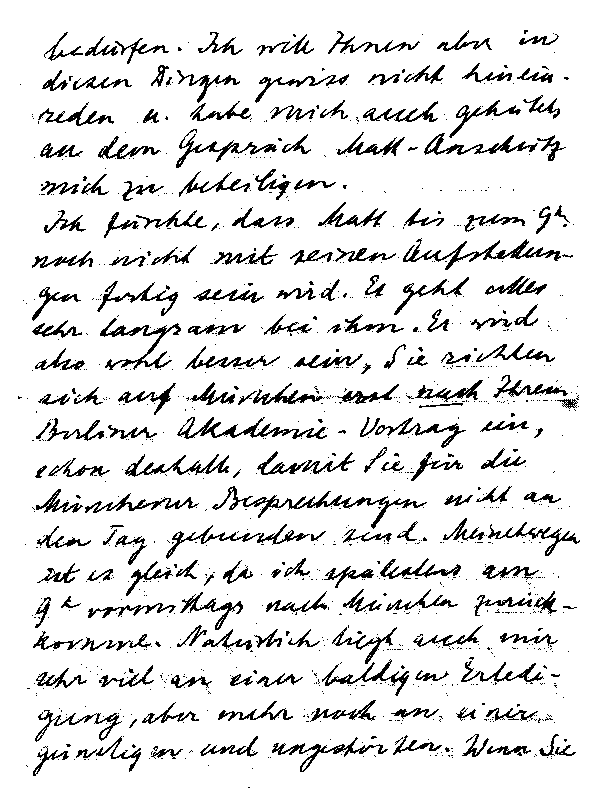 bedürfen. Ich will Ihnen aber in
diesen Dingen gewiss nicht hinein-
reden u. habe mich auch gehütet
an dem Gespräch Matt-Anschütz
mich zu beteiligen.
Ich fürchte, dass Matt bis zum 9t.
noch nicht mit seinen Aufstellun-
gen fertig sein wird. Es geht alles
sehr langsam bei ihm. Es wird
also wohl besser sein, Sie richten
sich auf München erst nach Ihrem
Berliner Akademie-Vortrag ein,
schon deshalb, damit Sie für die
Münchener Besprechungen nicht an
den Tag gebunden sind. Meinetwegen
ist es gleich, da ich spätestens am
9t vormittags nach München zurück-
komme. Natürlich liegt auch mir
sehr viel an einer baldigen Erledi-
gung, aber mehr noch an einer
günstigen und ungestörten. Wenn Sie